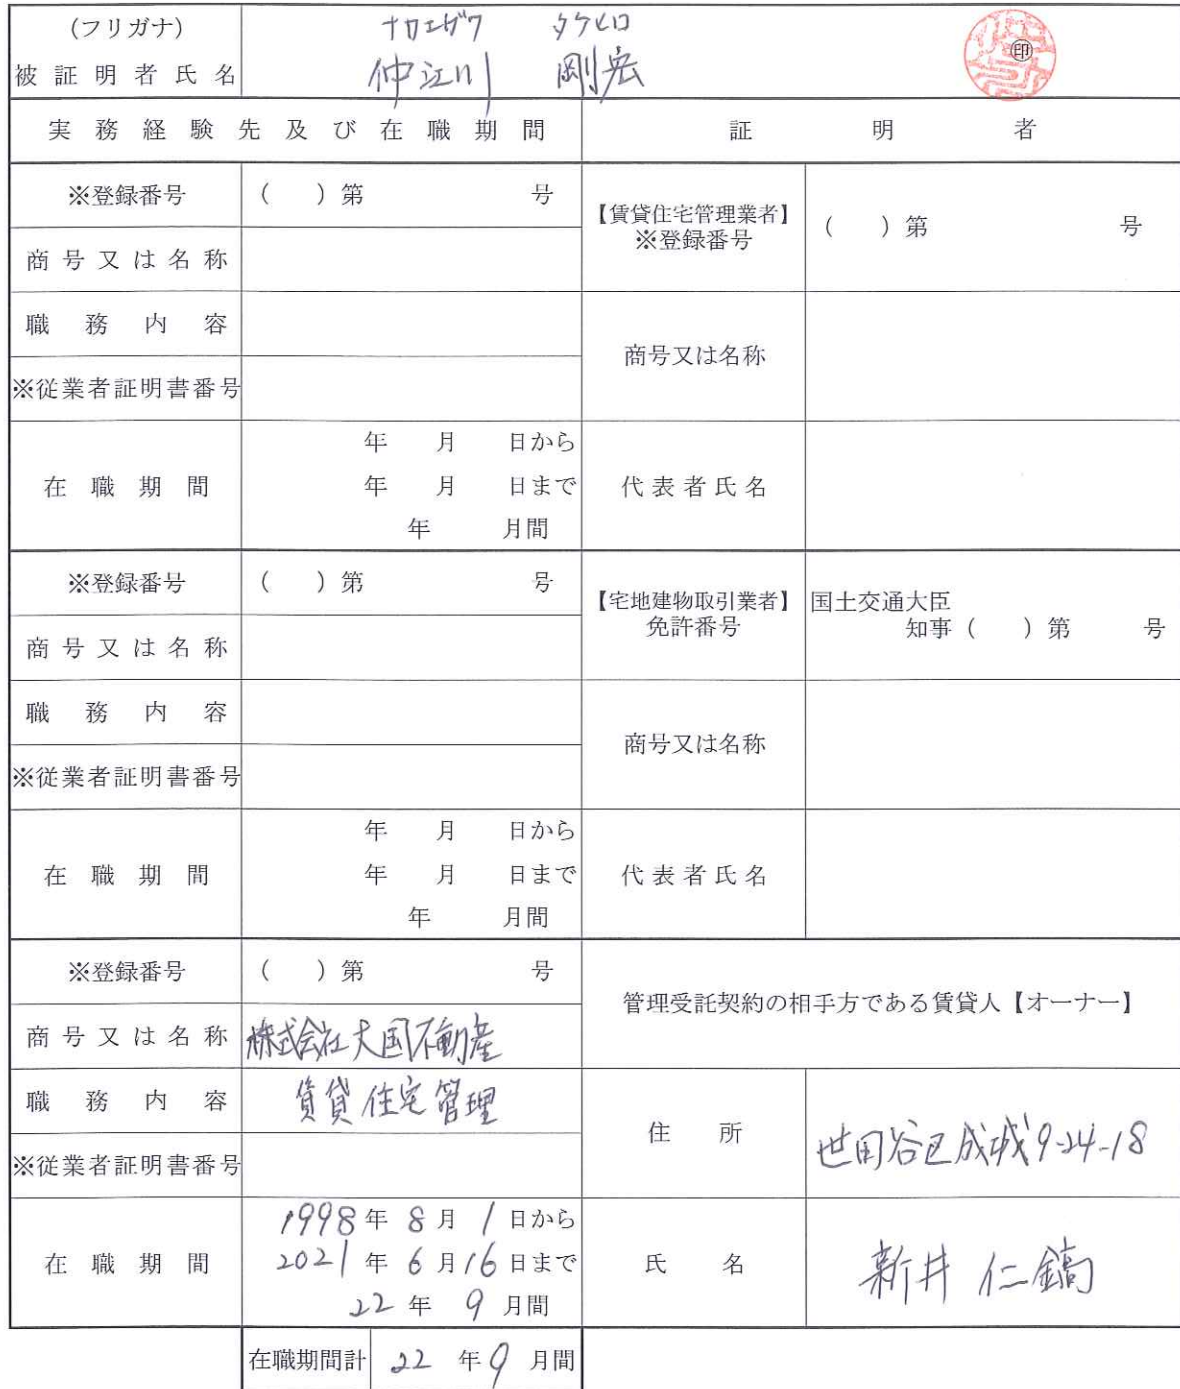 (フリガナ) ナカエガワ タケヒロ
被証明者氏名 仲江川 剛宏 ㊞
実務経験先及び在職期間 証明者
※登録番号 ( )第 号
【賃貸住宅管理業者】
※登録番号 ( )第 号
商号又は名称
職務内容
商号又は名称
※従業者証明書番号
在職期間
年 月 日から
年 月 日まで
年 月間
代表者氏名
※登録番号 ( )第 号
【宅地建物取引業者】
免許番号
国土交通大臣
知事( )第 号
商号又は名称
職務内容
商号又は名称
※従業者証明書番号
在職期間
年 月 日から
年 月 日まで
年 月間
代表者氏名
※登録番号 ( )第 号
管理受託契約の相手方である賃貸人【オーナー】
商号又は名称 株式会社大国不動産
職務内容 賃貸住宅管理
※従業者証明書番号
住所 世田谷区成城9-24-18
在職期間
1998年8月1日から
2021年6月16日まで
22年9月間
氏名 新井 仁鎬
在職期間計 22年9月間